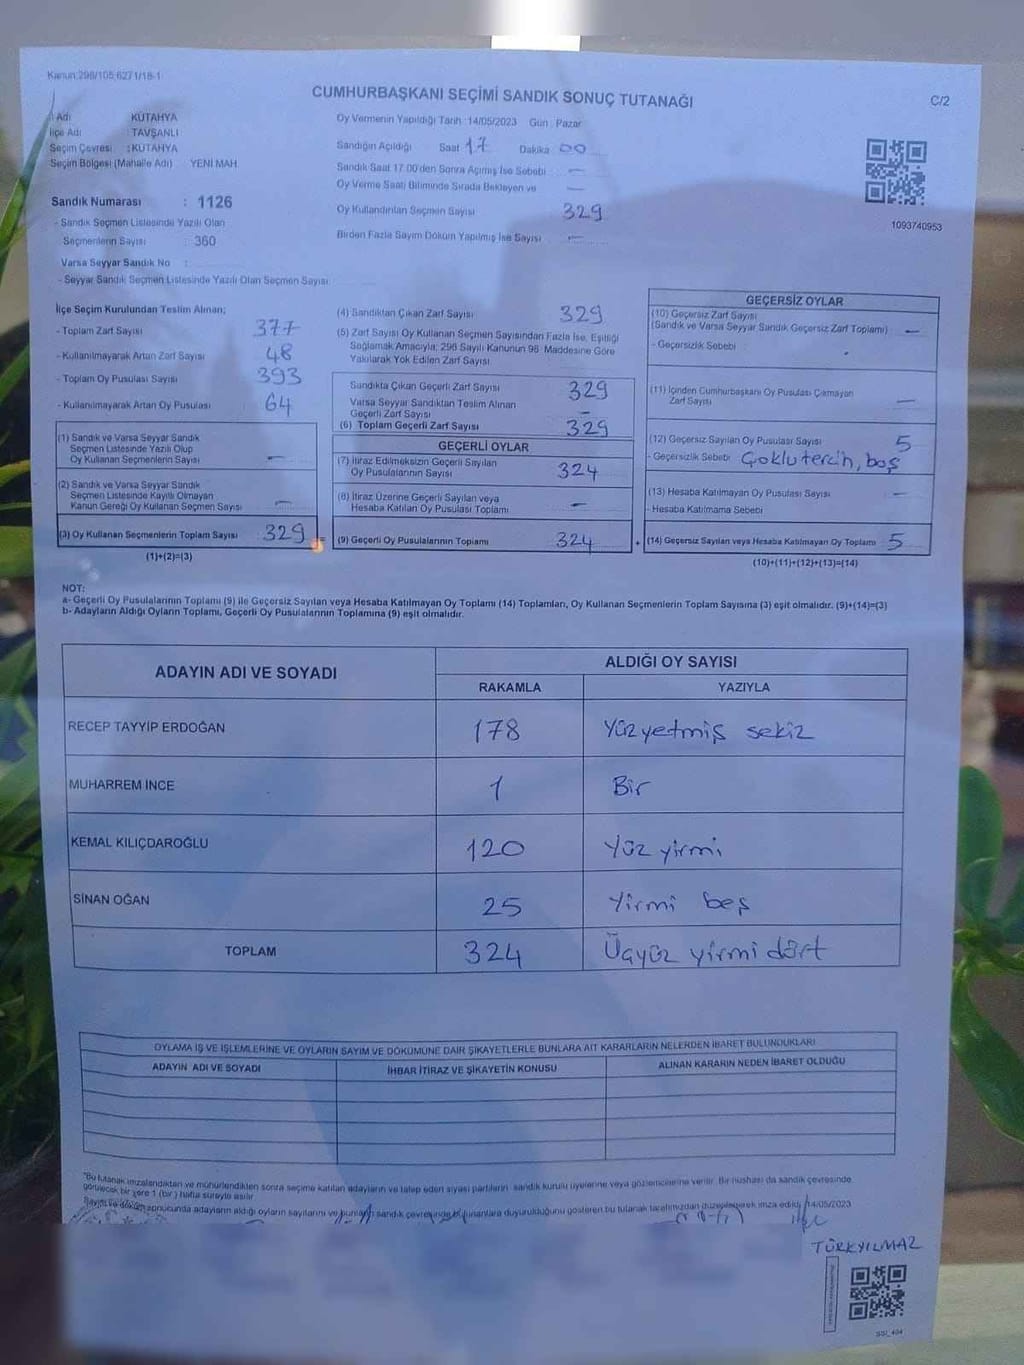 Kanun:298/105,6271/18-1
CUMHURBAŞKANI SEÇİMİ SANDIK SONUÇ TUTANAĞI
C/2
İl Adı : KÜTAHYA
İlçe Adı : TAVŞANLI
Seçim Çevresi : KÜTAHYA
Seçim Bölgesi (Mahalle Adı) : YENİ MAH.
Sandık Numarası : 1126
- Sandık Seçmen Listesinde Yazılı Olan
Seçmenlerin Sayısı : 360
Varsa Seyyar Sandık No :
- Seyyar Sandık Seçmen Listesinde Yazılı Olan Seçmen Sayısı:
Oy Vermenin Yapıldığı Tarih :14/05/2023 Gün : Pazar
Sandığın Açıldığı Saat 17 Dakika 00
Sandık Saat 17.00'den Sonra Açılmış İse Sebebi —
Oy Verme Saati Bitiminde Sırada Bekleyen ve —
Oy Kullandırılan Seçmen Sayısı 329
Birden Fazla Sayım Döküm Yapılmış İse Sayısı —
1093740953
İlçe Seçim Kurulundan Teslim Alınan;
- Toplam Zarf Sayısı 377
- Kullanılmayarak Artan Zarf Sayısı 48
- Toplam Oy Pusulası Sayısı 393
- Kullanılmayarak Artan Oy Pusulası 64
(1) Sandık ve Varsa Seyyar Sandık
Seçmen Listesinde Yazılı Olup
Oy Kullanan Seçmenlerin Sayısı —
(2) Sandık ve Varsa Seyyar Sandık
Seçmen Listesinde Kayıtlı Olmayan
Kanun Gereği Oy Kullanan Seçmen Sayısı —
(3) Oy Kullanan Seçmenlerin Toplam Sayısı 329
(1)+(2)=(3)
=
(4) Sandıktan Çıkan Zarf Sayısı 329
(5) Zarf Sayısı Oy Kullanan Seçmen Sayısından Fazla İse, Eşitliği
Sağlamak Amacıyla; 298 Sayılı Kanunun 98. Maddesine Göre
Yakılarak Yok Edilen Zarf Sayısı
Sandıkta Çıkan Geçerli Zarf Sayısı 329
Varsa Seyyar Sandıktan Teslim Alınan
Geçerli Zarf Sayısı —
(6) Toplam Geçerli Zarf Sayısı 329
GEÇERLİ OYLAR
(7) İtiraz Edilmeksizin Geçerli Sayılan
Oy Pusulalarının Sayısı 324
(8) İtiraz Üzerine Geçerli Sayılan veya
Hesaba Katılan Oy Pusulası Toplamı —
(9) Geçerli Oy Pusulalarının Toplamı 324
+
GEÇERSİZ OYLAR
(10) Geçersiz Zarf Sayısı
(Sandık ve Varsa Seyyar Sandık Geçersiz Zarf Toplamı) —
- Geçersizlik Sebebi :
(11) İçinden Cumhurbaşkanı Oy Pusulası Çıkmayan
Zarf Sayısı —
(12) Geçersiz Sayılan Oy Pusulası Sayısı 5
- Geçersizlik Sebebi Çoklu tercih, boş
(13) Hesaba Katılmayan Oy Pusulası Sayısı —
- Hesaba Katılmama Sebebi
(14) Geçersiz Sayılan veya Hesaba Katılmayan Oy Toplamı 5
(10)+(11)+(12)+(13)=(14)
NOT:
a- Geçerli Oy Pusulalarının Toplamı (9) ile Geçersiz Sayılan veya Hesaba Katılmayan Oy Toplamı (14) Toplamları, Oy Kullanan Seçmenlerin Toplam Sayısına (3) eşit olmalıdır. (9)+(14)=(3)
b- Adayların Aldığı Oyların Toplamı, Geçerli Oy Pusulalarının Toplamına (9) eşit olmalıdır.
ADAYIN ADI VE SOYADI
ALDIĞI OY SAYISI
RAKAMLA YAZIYLA
RECEP TAYYİP ERDOĞAN 178 Yüzyetmiş sekiz
MUHARREM İNCE 1 Bir
KEMAL KILIÇDAROĞLU 120 Yüz yirmi
SİNAN OĞAN 25 Yirmi beş
TOPLAM 324 Üçyüz yirmi dört
OYLAMA İŞ VE İŞLEMLERİNE VE OYLARIN SAYIM VE DÖKÜMÜNE DAİR ŞİKAYETLERLE BUNLARA AİT KARARLARIN NELERDEN İBARET BULUNDUKLARI
ADAYIN ADI VE SOYADI İHBAR İTİRAZ VE ŞİKAYETİN KONUSU ALINAN KARARIN NEDEN İBARET OLDUĞU
*Bu tutanak imzalandıktan ve mühürlendikten sonra seçime katılan adayların ve talep eden siyasi partilerin sandık kurulu üyelerine veya gözlemcilerine verilir. Bir nüshası da sandık çevresinde
görülecek bir yere 1 (bir) hafta süreyle asılır.
Sayım ve döküm sonucunda adayların aldığı oyların sayılarını ve bunların sandık çevresinde bulunanlara duyurulduğunu gösteren bu tutanak tarafımızdan düzenlenerek imza edildi. 14/05/2023
TÜRKYILMAZ
SSI_404